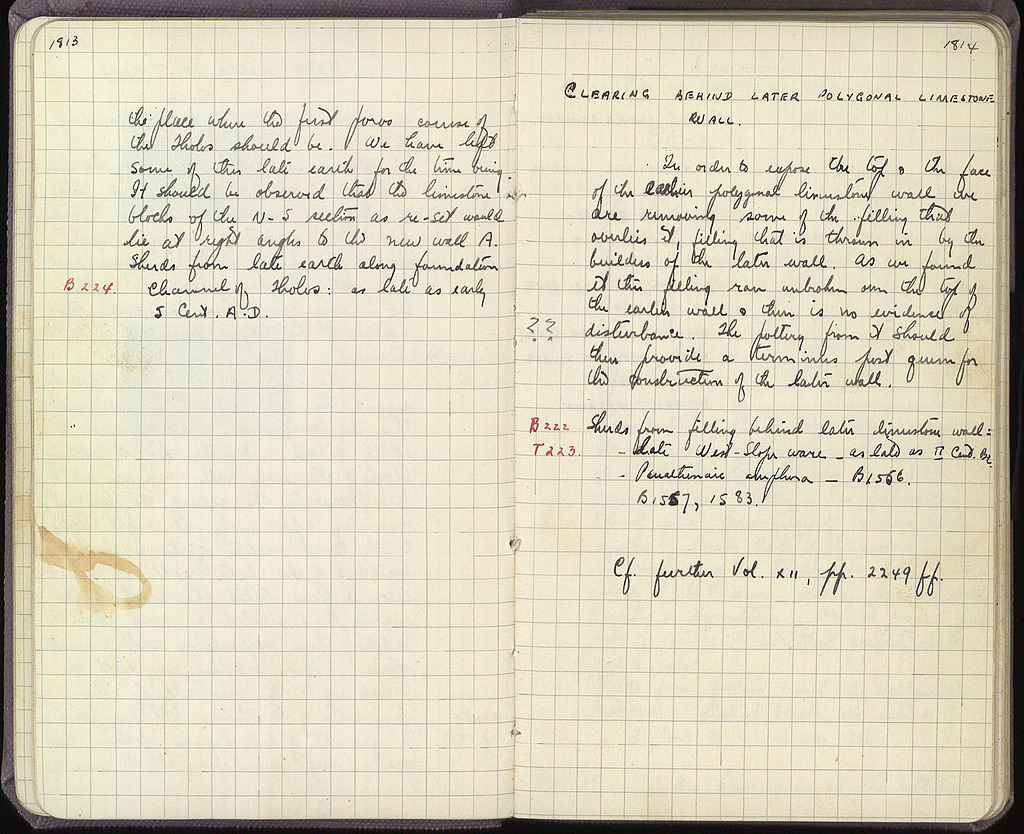 1813
the place where the first poros course of
the Tholos should be. We have left
some of this late earth for the time being.
It should be observed that the limestone
blocks of the N-S section as re-set would
lie at right angles to the new wall A.
Sherds from late earth along foundation
B 224. channel of Tholos: as late as early
5 Cent. A.D.
1814
CLEARING BEHIND LATER POLYGONAL LIMESTONE
WALL.
In order to expose the top & the face
of the earlier polygonal limestone wall we
are removing some of the filling that
overlies it, filling that is thrown in by the
builders of the later wall. As we found
it this filling ran unbroken over the top of
the earlier wall & there is no evidence of
?? disturbance. The pottery from it should
then provide a terminus post quem for
the construction of the later wall.
B 222 Sherds from filling behind later limestone wall:
T 223. - Late West-Slope ware - as late as II Cent. BC.
- Panathenaic amphora - B1556.
B1557, 1583.
Cf. further Vol. XII, pp. 2249 ff.